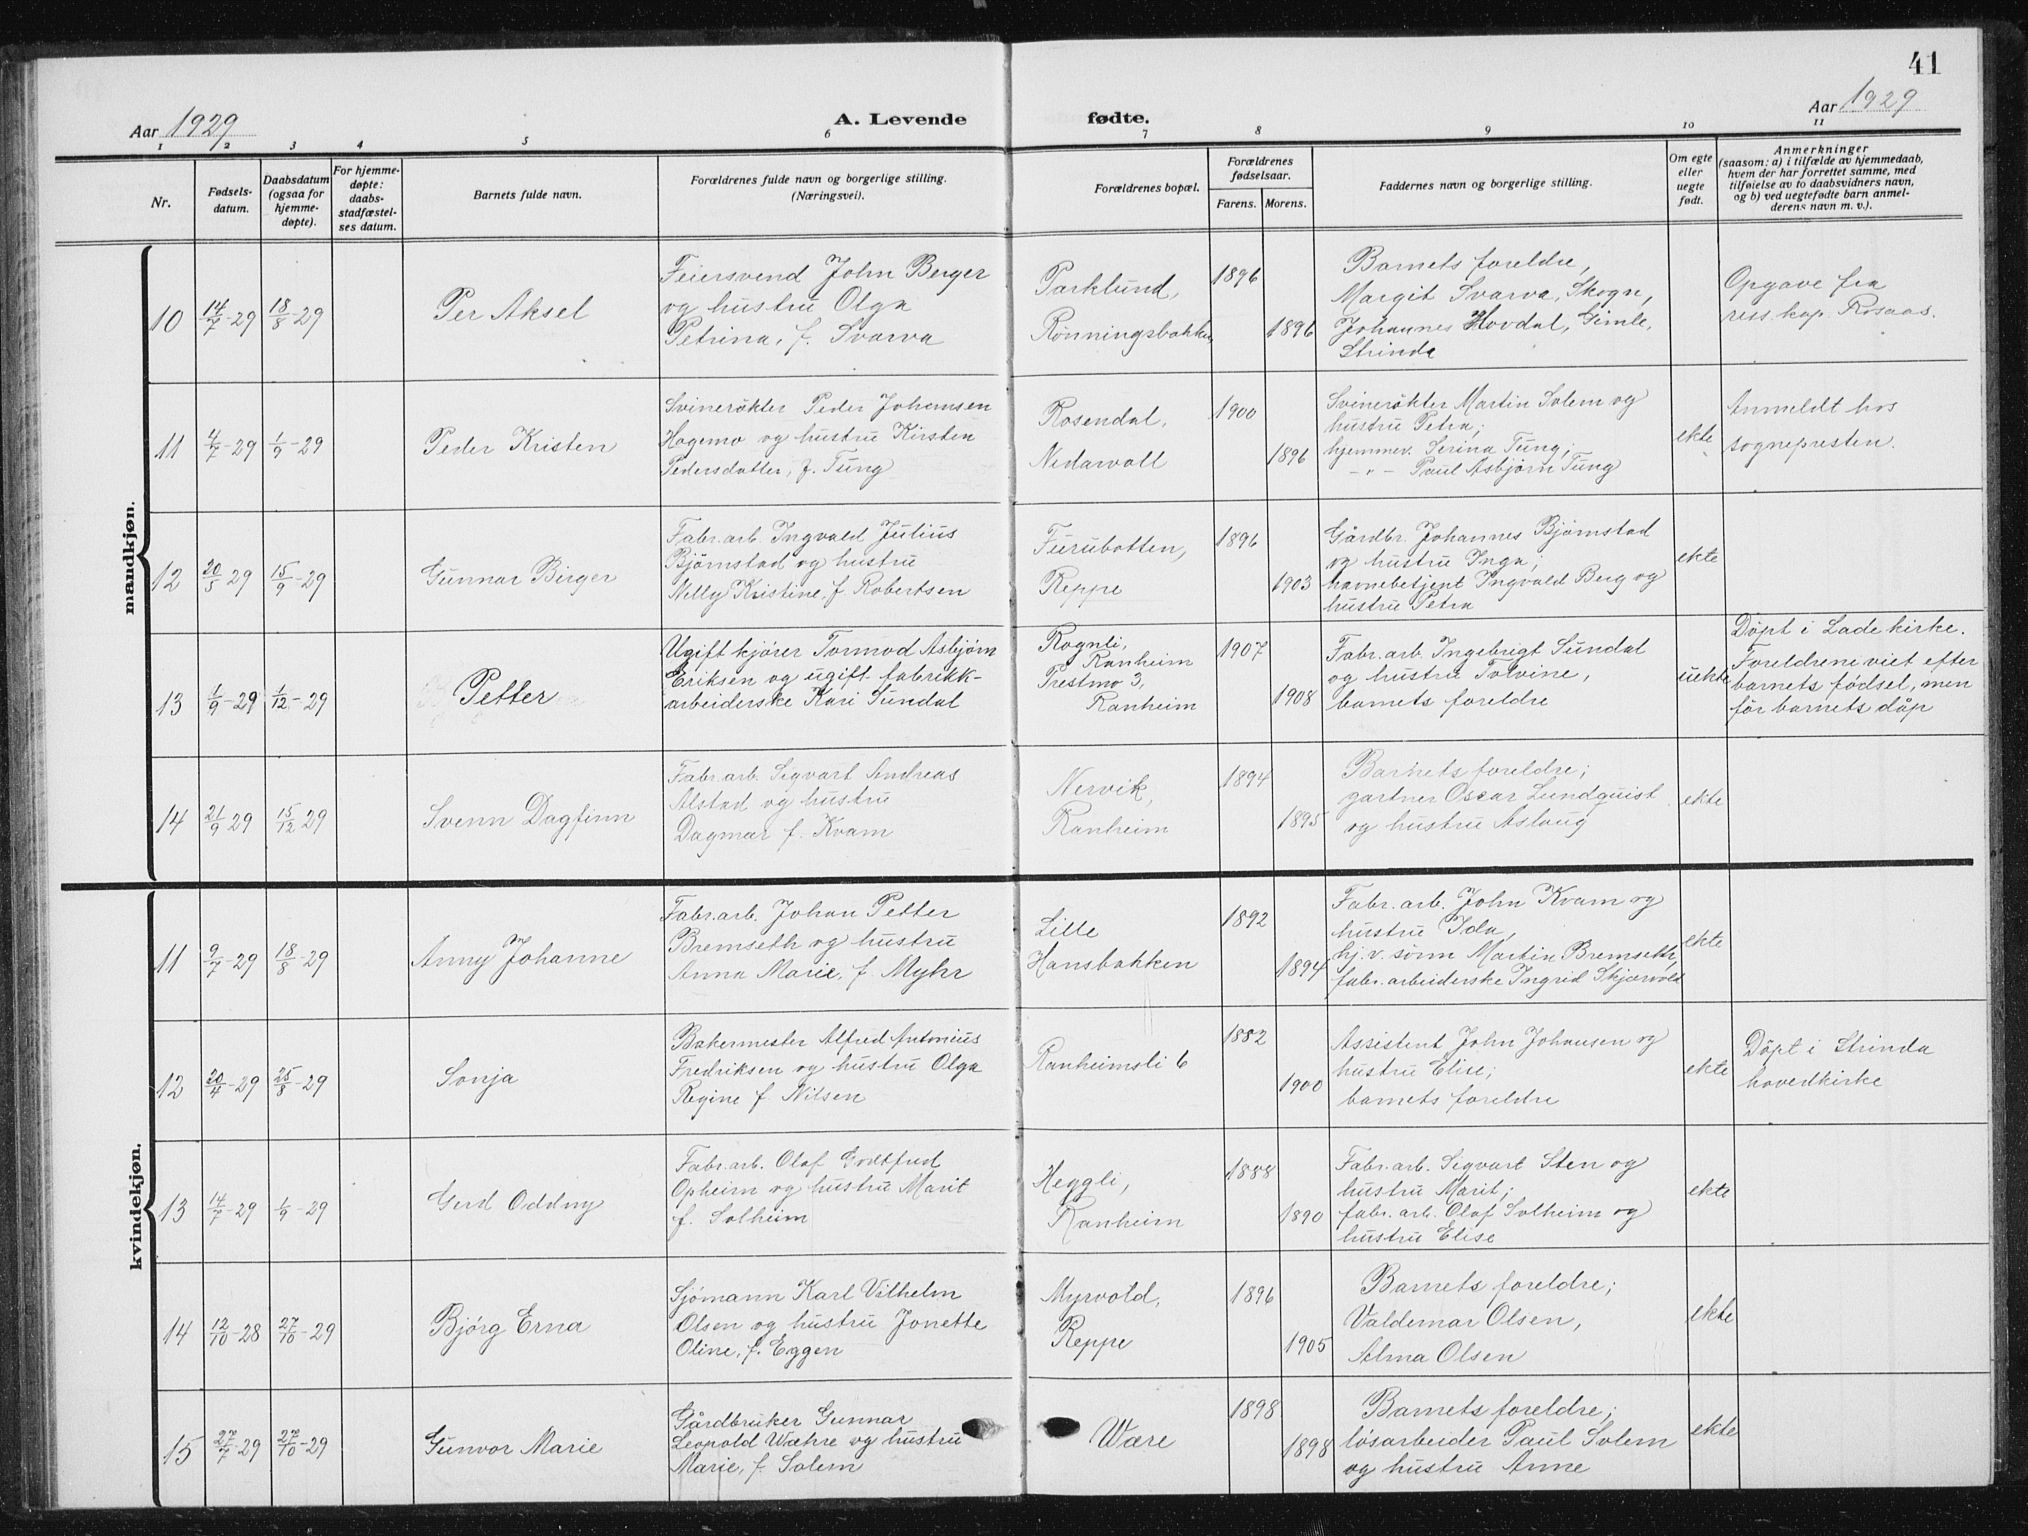 41
Aar 1929
A. Levende
fødte.
Aar 1929
1 2 3 4 5 6 7 8 9 10 11
Nr.
Fødsels-
datum.
Daabsdatum
(ogsaa for
hjemme-
døpte).
For hjemme-
døpte:
daabs-
stadfæstel-
ses datum.
Barnets fulde navn.
Forældrenes fulde navn og borgerlige stilling.
(Næringsvei).
Forældrenes bopæl.
Forældrenes
fødselsaar.
Farens. Morens.
Faddernes navn og borgerlige stilling.
Om egte
eller
uegte
født.
Anmerkninger
(saasom: a) i tilfælde av hjemmedaab,
hvem der har forrettet samme, med
tilføielse av to daabsvidners navn,
og b) ved uegtefødte barn anmel-
derens navn m. v.).
mandkjøn.
10 14/7-29 18/8-29
Per Aksel
Feiersvend John Berger
og hustru Olga
Petrina, f. Svarva
Parklund,
Rønningsbakken
1896
1896
Barnets foreldre,
Margit Svarva, Skogn,
Johannes Hovdal, Gimle,
Strinda
Opgave fra
res. kap. Rosaas.
11 4/7-29 1/9-29
Peder Kristen
Svinerøkter Peder Johansen
Hagemo og hustru Kirsten
Pedersdatter, f. Tung
Rosendal,
Nedarvoll
1900
1896
Svinerøkter Martin Solem og
hustru Petra;
hjemmev. Serina Tung;
-"- Paul Asbjørn Tung
ekte
Anmeldt hos
sognepresten.
12 20/5-29 15/9-29
Gunnar Birger
Fabr.arb. Ingvald Julius
Bjørnstad og hustru
Nelly Kristine, f Robertsen
Furubotten,
Reppe
1896
1903
Gårdbr. Johannes Bjørnstad
og hustru Inga;
havnebetjent Ingvald Berg og
hustru Petra
ekte
13 1/9-29 1/12-29
Petter
Ugift kjører Tormod Asbjørn
Eriksen og ugift fabrikk-
arbeiderske Kari Sundal
Rognli,
Ranheim
Prestmo 3,
Ranheim
1907
1908
Fabr.arb. Ingebrigt Sundal
og hustru Tolvine,
barnets foreldre
uekte
Døpt i Lade kirke.
Foreldrene viet efter
barnets fødsel, men
før barnets dåp
14 21/9-29 15/12-29
Svenn Dagfinn
Fabr.arb. Sigvart Andreas
Alstad og hustru
Dagmar f. Kvam
Nervik,
Ranheim
1894
1895
Barnets foreldre;
gartner Oscar Lundquist
og hustru Aslaug
ekte
kvindekjøn.
11 9/7-29 18/8-29
Anny Johanne
Fabr.arb. Johan Petter
Bremseth og hustru
Anna Marie, f. Myhr
Lille
Hansbakken
1892
1894
Fabr.arb. John Kvam og
hustru Ida,
hj.v. sønn Martin Bremseth,
fabr.arbeiderske Ingrid Skjærvold
ekte
12 20/4-29 25/8-29
Sonja
Bakermester Alfred Antonius
Fredriksen og hustru Olga
Regine f Nilsen
Ranheimsli 6
1882
1900
Assistent John Johansen og
hustru Elise;
barnets foreldre
ekte
Døpt i Strinda
hovedkirke
13 14/7-29 1/9-29
Gerd Oddny
Fabr.arb. Olaf Godtfred
Opheim og hustru Marit
f. Solheim
Heggli,
Ranheim
1888
1890
Fabr.arb. Sigvart Sten og
hustru Marit;
fabr.arb. Olaf Solheim og
hustru Elise
ekte
14 12/10-28 27/10-29
Bjørg Erna
Sjømann Karl Vilhelm
Olsen og hustru Jonette
Oline, f. Eggen
Myrvold,
Reppe
1896
1905
Barnets foreldre;
Valdemar Olsen,
Alma Olsen
ekte
15 27/7-29 27/10-29
Gunvor Marie
Gårdbruker Gunnar
Leopold Wæhre og hustru
Marie, f. Solem
Være
1898
1898
Barnets foreldre;
løsarbeider Paul Solem
og hustru Anne
ekte